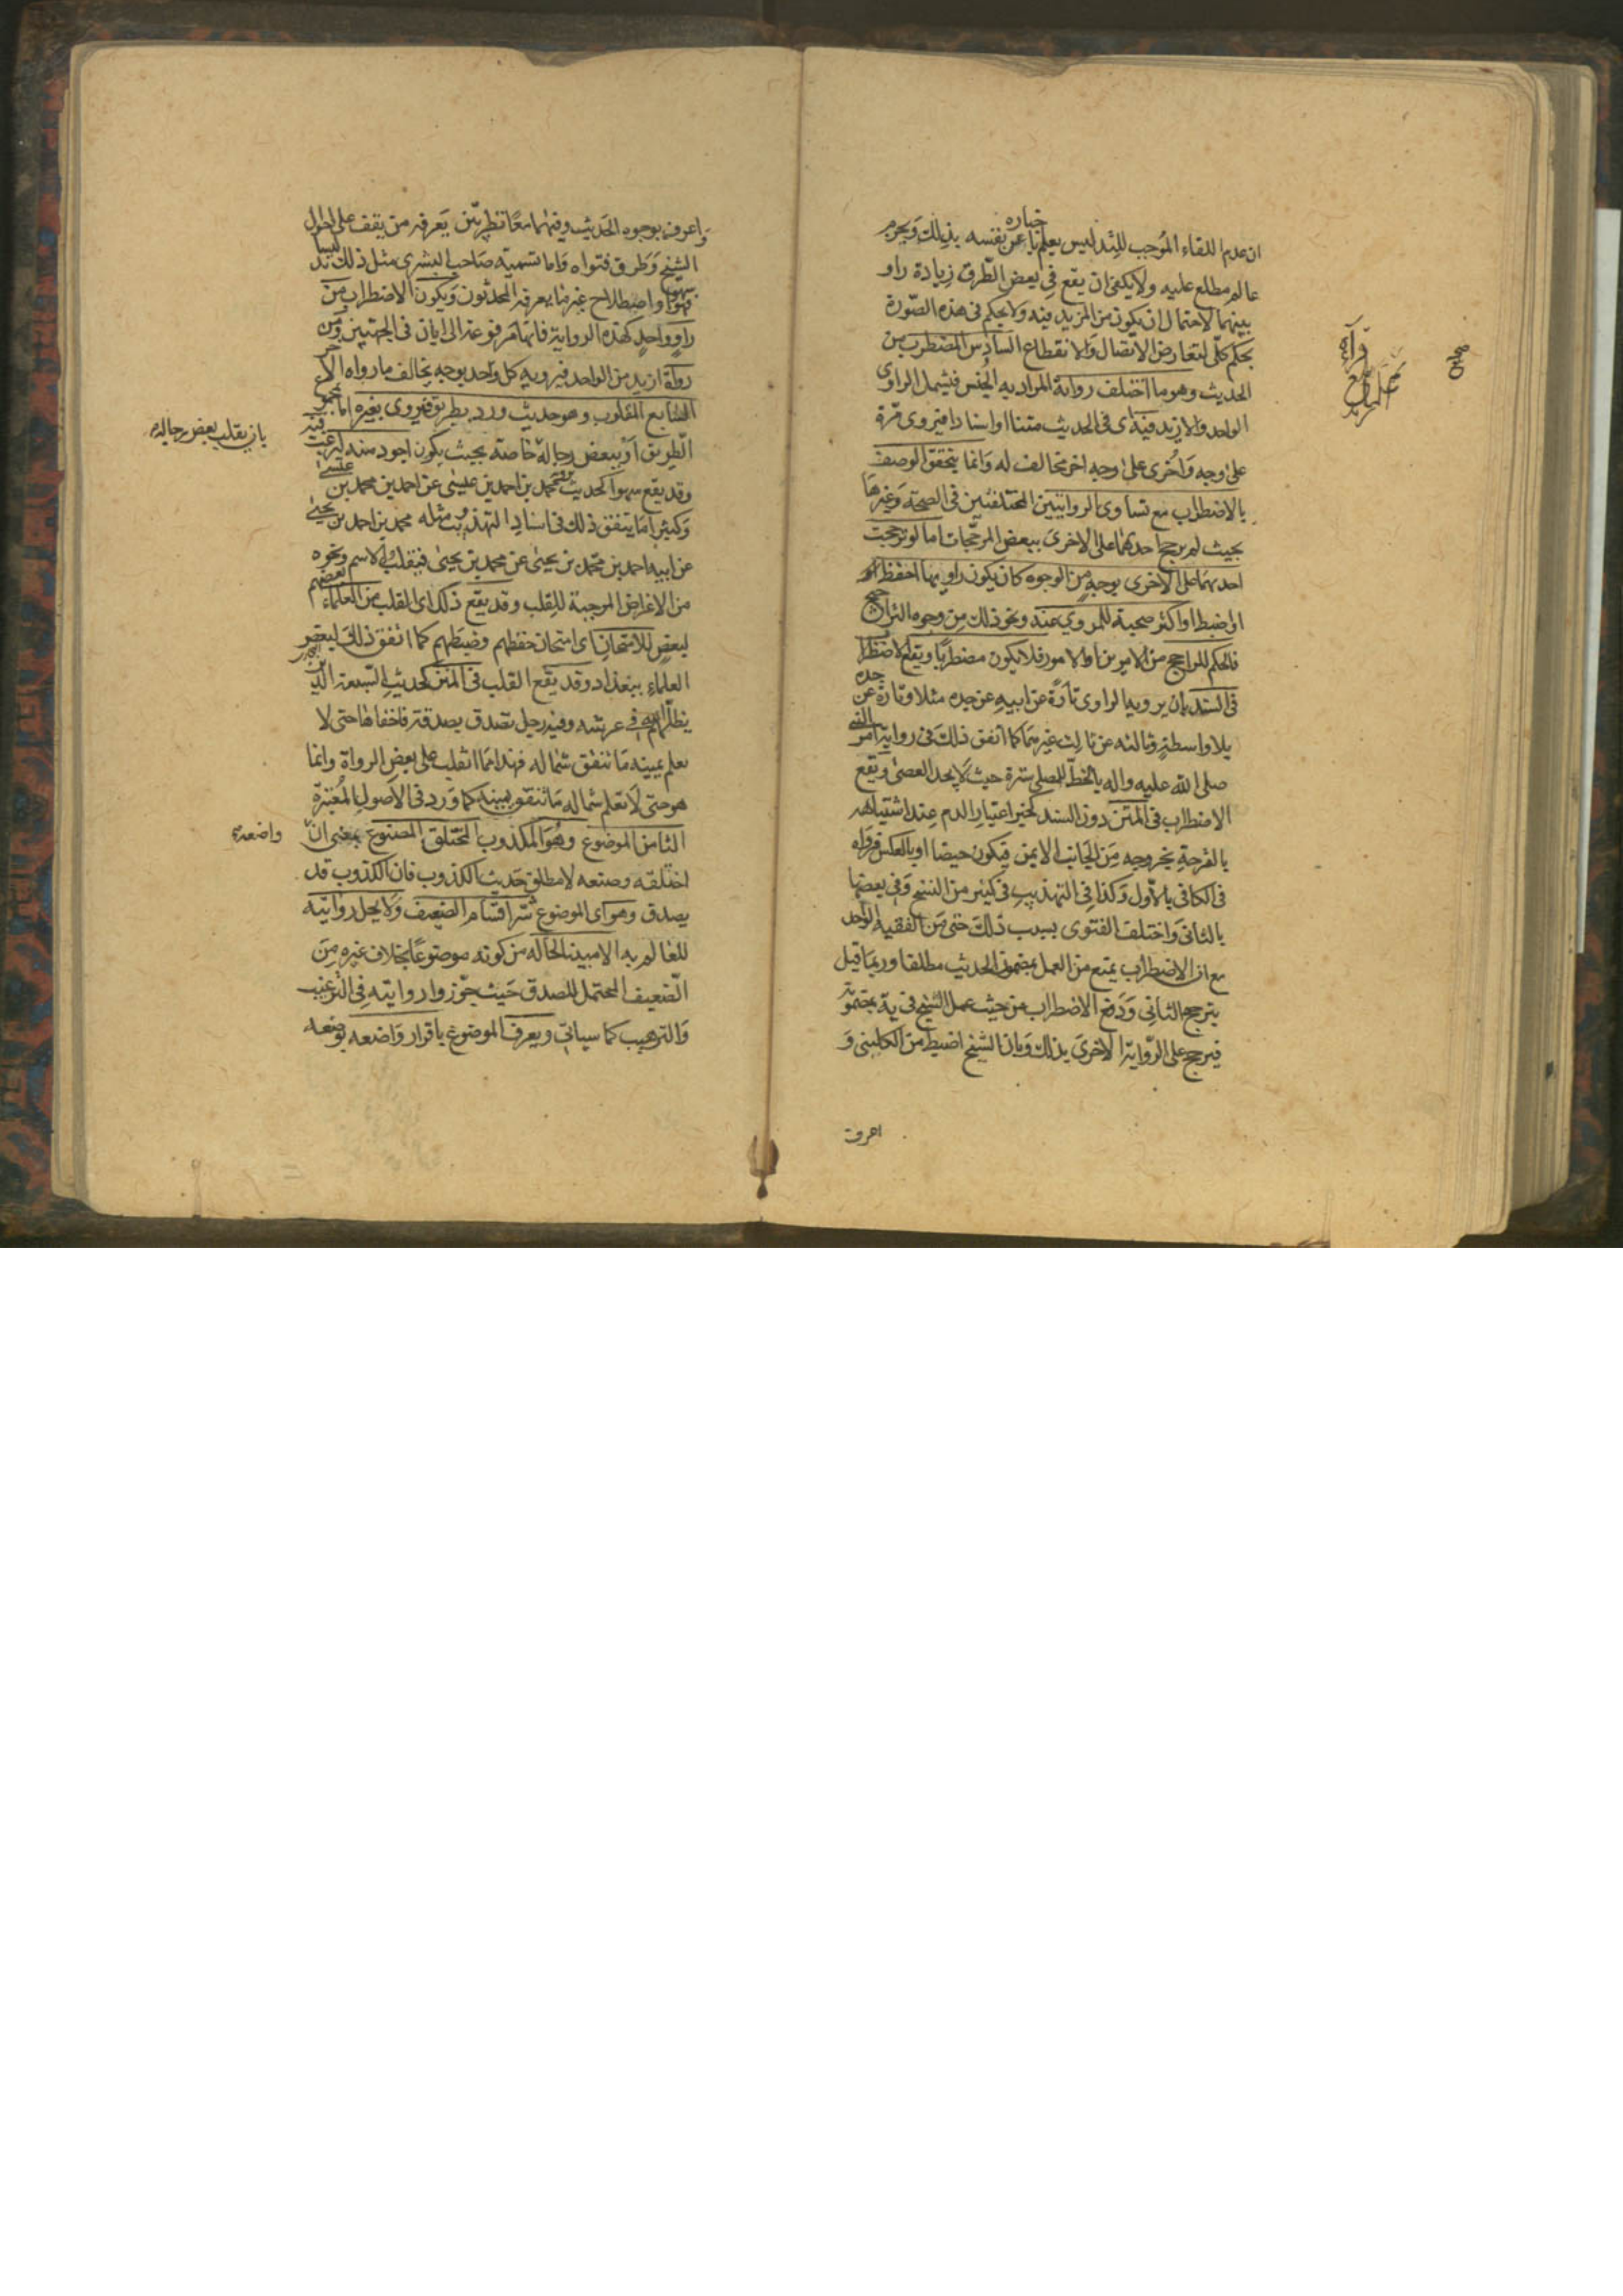 ان عدم اللقاء الموجب للتدليس يعلم باخباره عن نفسه بذلك وبجزم
عالم مطلع عليه ولا يكفى ان يقع فى بعض الطرق زيادة راو
بينهما لاحتمال ان يكون من المزيد فيه ولا يحكم فى هذه الصورة
بحكم كلى لتعارض الاتصال والانقطاع السادس المضطرب من
الحديث وهو ما اختلف رواية المراد به الجنس فيشمل الراوى
الواحد والازيد فيه اى فى الحديث متنا او اسنادا فيروى مرة
على وجه واخرى على وجه اخر مخالف له وانما يتحقق الوصف
بالاضطراب مع تساوى الروايتين المختلفتين فى الصحة وغيرها
بحيث لم يرجح احدهما على الاخرى ببعض المرجحات اما لو ترجحت
احدهما على الاخرى بوجه من الوجوه كان يكون راويها احفظ او
اضبط او اكثر صحبة للمروي عنه ونحو ذلك من وجوه الترجيح
فالحكم للراجح من الامرين او الامور فلا يكون مضطربا ويقع الاضطرا
فى السند بان يرويه الراوى تارة عن ابيه عن جده مثلا وتارة عن جده
بلا واسطة وثالثه عن ثالث غيرهما كما اتفق ذلك فى رواية امر النبى
صلى الله عليه واله بالخط للمصلى سترة حيث لا يجد العصى ويقع
الاضطراب فى المتن دون السند كخبر اعتبار الدم عند اشتباهه
بالقرحة بخروجه من الجانب الايمن فيكون حيضا او بالعكس فرواه
فى الكافى بالاول وكذا فى التهذيب فى كثير من النسخ وفى بعضها
بالثانى واختلف الفتوى بسبب ذلك حتى من الفقيه الواحد
مع ان الاضطراب يمنع من العمل بمضمون الحديث مطلقا وربما قيل
بترجيح الثانى ودفع الاضطراب من حيث عمل الشيخ فى يه بمضمونه
فيرجح على الرواية الاخرى بذلك وبان الشيخ اضبط من الكلينى و
اعرف
واعرف بوجوه الحديث وفيهما معا نظر بين يعرفه من يقف على احوال
الشيخ وطرق فتواه واما تسمية صاحب البشرى مثل ذلك تدليسا
فهو سهو او اصطلاح غير ما يعرفه المحدثون ويكون الاضطراب من
راو واحد كهذه الرواية فانها مرفوعة الى ابان فى الجهتين ومن
رواة ازيد من الواحد فيرويه كل واحد بوجه يخالف ما رواه الاخر
السابع المقلوب وهو حديث ورد بطريق فيروى بغيره اما بمجموع
الطريق او ببعض رجاله خاصة بحيث يكون اجود منه ليرغب فيه
بان يقلب بعض رجاله
وقد يقع سهوا كحديث يرويه محمد بن احمد بن عيسى عن احمد بن محمد بن عيسى
وكثيرا ما يتفق ذلك فى اسناد التهذيب ومثله محمد بن احمد بن يحيى
عن ابيه احمد بن محمد بن يحيى عن محمد بن يحيى فينقلب الاسم ونحوه
من الاغراض الموجبة للقلب وقد يقع ذلك اى القلب من العلماء بعضهم
لبعض للامتحان اى امتحان حفظهم وضبطهم كما اتفق ذلك لبعض
العلماء ببغداد وقد يقع القلب فى المتن كحديث السبعة الذين
يظلهم الله فى عرشه وفيه رجل تصدق بصدقة فاخفاها حتى لا
تعلم يمينه ما تنفق شماله فهذا مما انقلب على بعض الرواة وانما
هو حتى لا تعلم شماله ما تنفق يمينه كما ورد فى الاصول المعتبرة
الثامن الموضوع وهو المكذوب المختلق المصنوع بمعنى ان واضعه
اختلقه وصنعه لا مطلق حديث الكذوب فان الكذوب قد
يصدق وهو اى الموضوع شر اقسام الضعيف ولا يحل روايته
للعالم به الا مبينا لحاله من كونه موضوعا بخلاف غيره من
الضعيف المحتمل للصدق حيث جوزوا روايته فى الترغيب
والترهيب كما سياتى ويعرف الموضوع باقرار واضعه بوضعه